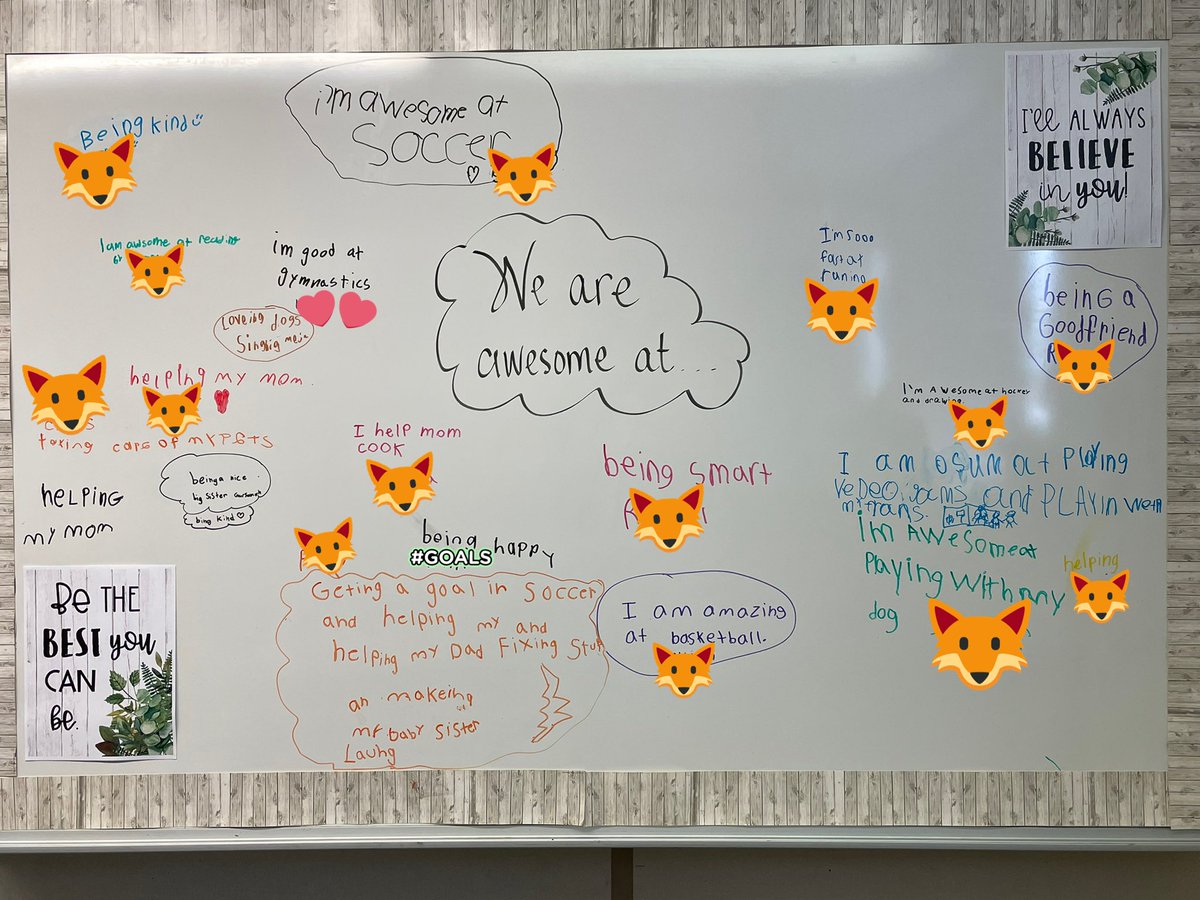 i'm awesome at
Soccer
Being kind
I'll ALWAYS
BELIEVE
in you!
I am awsome at reading
im good at
gymnastics
We are
awesome at...
I'm sooo
fast at
runino
being a
Goodfriend
Loveing dogs
Singing
helping my mom.
taking care of my pets
I'm Awesome at hockey
and drawing.
I help mom
cook
being smart
I am osum at Playing
vedeo gams and PLAYin with
my
HELPING
my mom
being a nice
big sister
being kind
im Awesome at
Playing with my
dog
helping
being happy
#GOALS
Geting a goal in Soccer
and helping my and
helping my Dad Fixing Stuf
an makeing
my baby sister
Lauhg
I am amazing
at basketball.
Be THE
BEST you
CAN
Be.